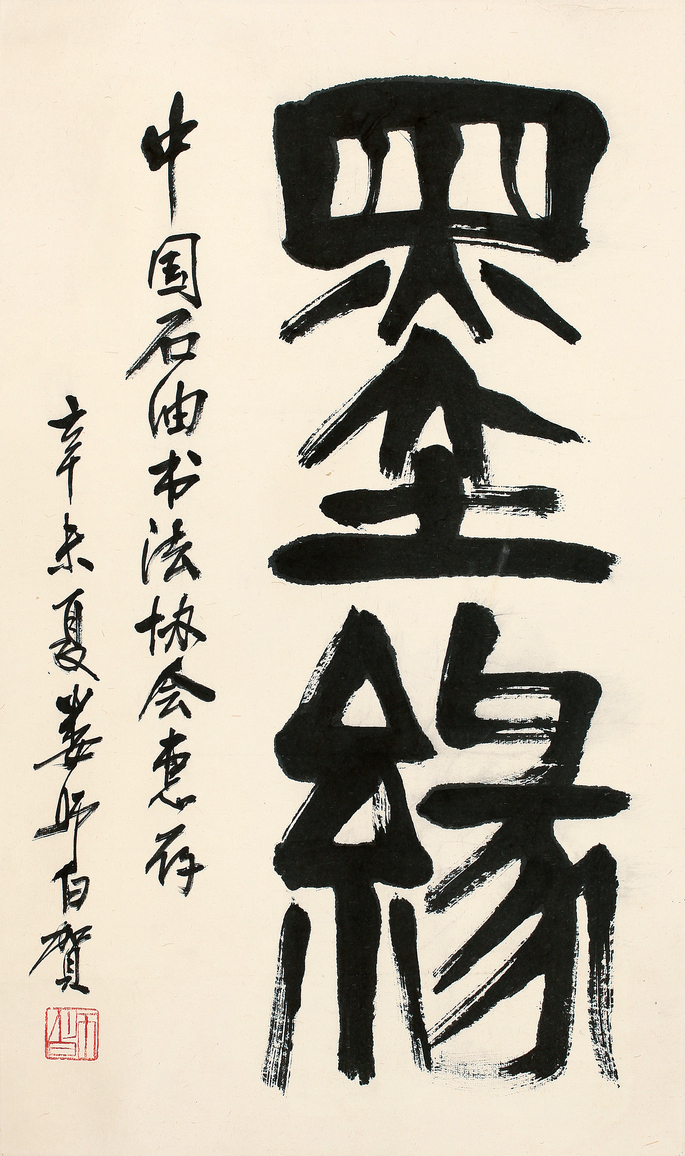 墨緣
中国石油书法协会惠存
辛未夏娄师白贺
师白